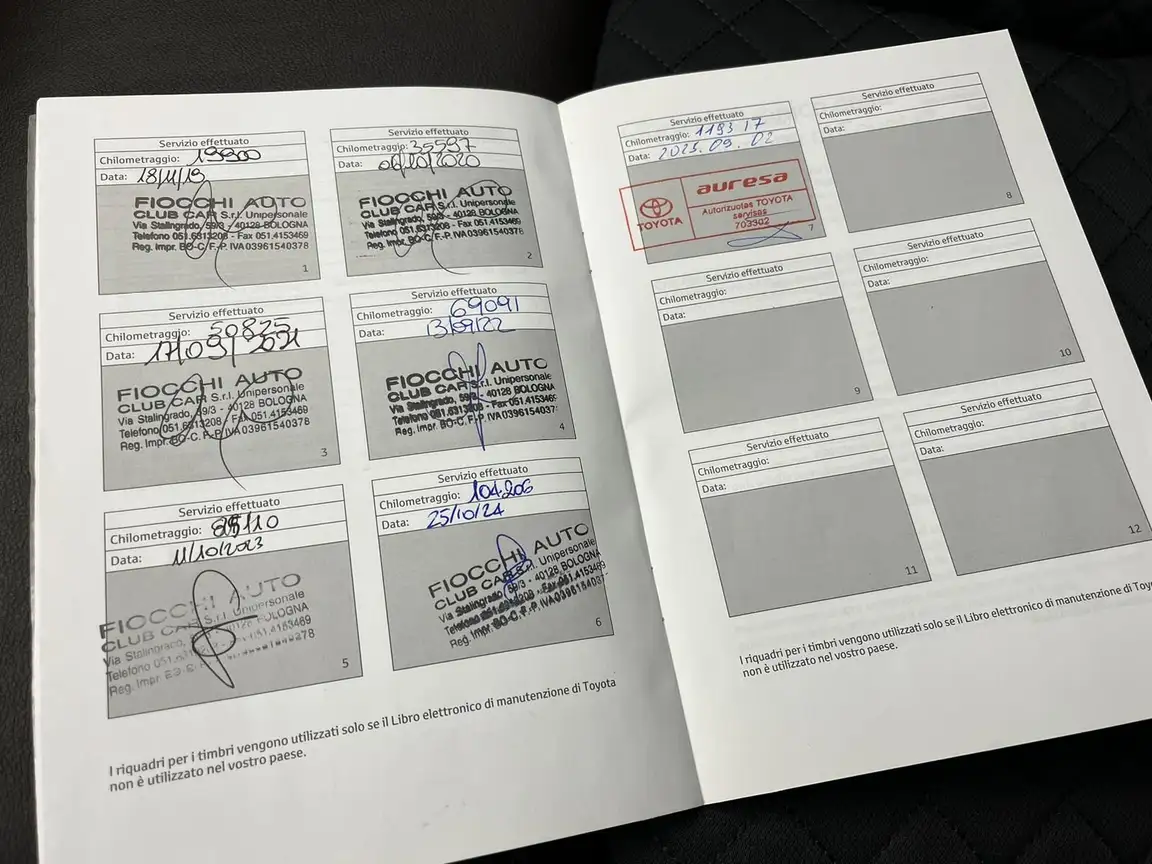 Servizio effettuato
Chilometraggio: 19900
Data: 18/11/19
FIOCCHI AUTO
CLUB CAR S.r.l. Unipersonale
Via Stalingrado, 59/3 - 40128 BOLOGNA
Telefono 051.6313208 - Fax 051.4153469
Reg. Impr. BO-C.F.-P. IVA 03961540378
1
Servizio effettuato
Chilometraggio: 35597
Data: 06/10/2020
FIOCCHI AUTO
CLUB CAR S.r.l. Unipersonale
Via Stalingrado, 59/3 - 40128 BOLOGNA
Telefono 051.6313208 - Fax 051.4153469
Reg. Impr. BO-C.F.-P. IVA 03961540378
2
Servizio effettuato
Chilometraggio: 50825
Data: 17/09/2021
FIOCCHI AUTO
CLUB CAR S.r.l. Unipersonale
Via Stalingrado, 59/3 - 40128 BOLOGNA
Telefono 051.6313208 - Fax 051.4153469
Reg. Impr. BO-C.F.-P. IVA 03961540378
3
Servizio effettuato
Chilometraggio: 69091
Data: 13/09/22
FIOCCHI AUTO
CLUB CAR S.r.l. Unipersonale
Via Stalingrado, 59/3 - 40128 BOLOGNA
Telefono 051.6313208 - Fax 051.4153469
Reg. Impr. BO-C.F.-P. IVA 0396154037
4
Servizio effettuato
Chilometraggio: 110
Data: 11/10/2023
FIOCCHI AUTO
CLUB CAR S.r.l. Unipersonale
Via Stalingrado, 40128 BOLOGNA
Telefono 051. 051.4153469
Reg. Impr.
5
Servizio effettuato
Chilometraggio: 104.206
Data: 25/10/24
FIOCCHI AUTO
CLUB CAR S.r.l. Unipersonale
Via Stalingrado 59/3 - 40128 BOLOGNA
Telefono 051.6313208 - Fax 051.4153469
Reg. Impr. BO-C.F.-P. IVA 0396154037
6
I riquadri per i timbri vengono utilizzati solo se il Libro elettronico di manutenzione di Toyota
non è utilizzato nel vostro paese.
Servizio effettuato
Chilometraggio: 119317
Data: 2025.09.02
TOYOTA
auresa
Autorizuotas TOYOTA
servisas
703302
7
Servizio effettuato
Chilometraggio:
Data:
8
Servizio effettuato
Chilometraggio:
Data:
9
Servizio effettuato
Chilometraggio:
Data:
10
Servizio effettuato
Chilometraggio:
Data:
11
Servizio effettuato
Chilometraggio:
Data:
12
I riquadri per i timbri vengono utilizzati solo se il Libro elettronico di manutenzione di Toyo
non è utilizzato nel vostro paese.